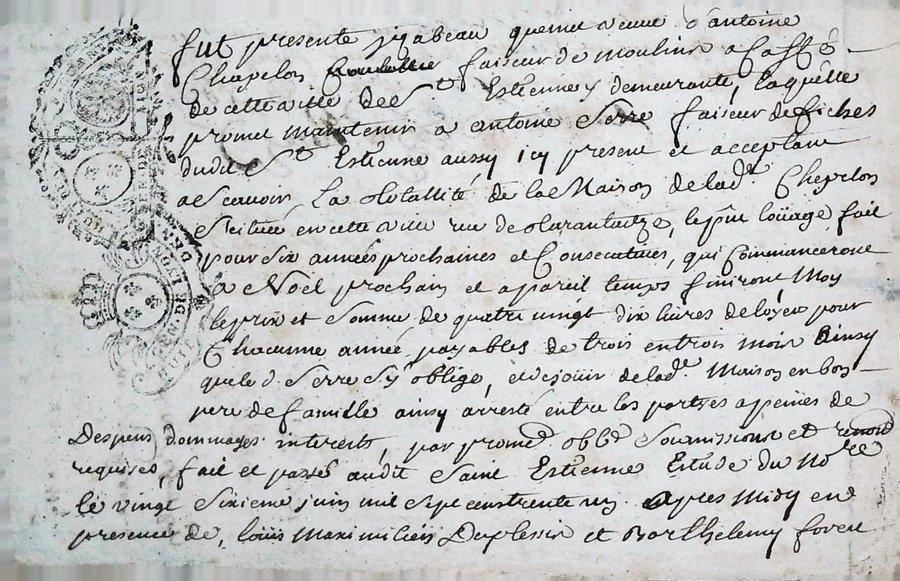 fut presente ysabeau quemin veuve d'antoine
Chapelon faiseur de moulins a Caffé
de cette ville de St Estienne y demeurante, laquelle
promet maintenir a antoine Serre faiseur de fiches
dudit St Estienne aussy icy present et acceptant
ascavoir La totallité de la Maison de lad.e Chaplon
Scituée en cette ville rue de lepñt loüage fait
pour Six années prochaines et Consecutives, qui Commanceront
a Noël prochain et a pareil temps finiront Moy
le prix et Somme de quatre vingt dix livres de loyer pour
Chacunne année payables de trois en trois mois Ainsy
que le d. Serre S'y oblige, et de jouir de lad.e Maison en bon
pere de famille ainsy arresté entre les parties a peines de
Despens, dommages interests, par promes oblig Soumissions et renon
requises, fait et passé audit Saint Estienne Estude du No.re
le vingt Sixieme juin mil Sept cens trente apres Midy en
presence de, Loüis Maximilien Duplessis et Barthelemy foreu